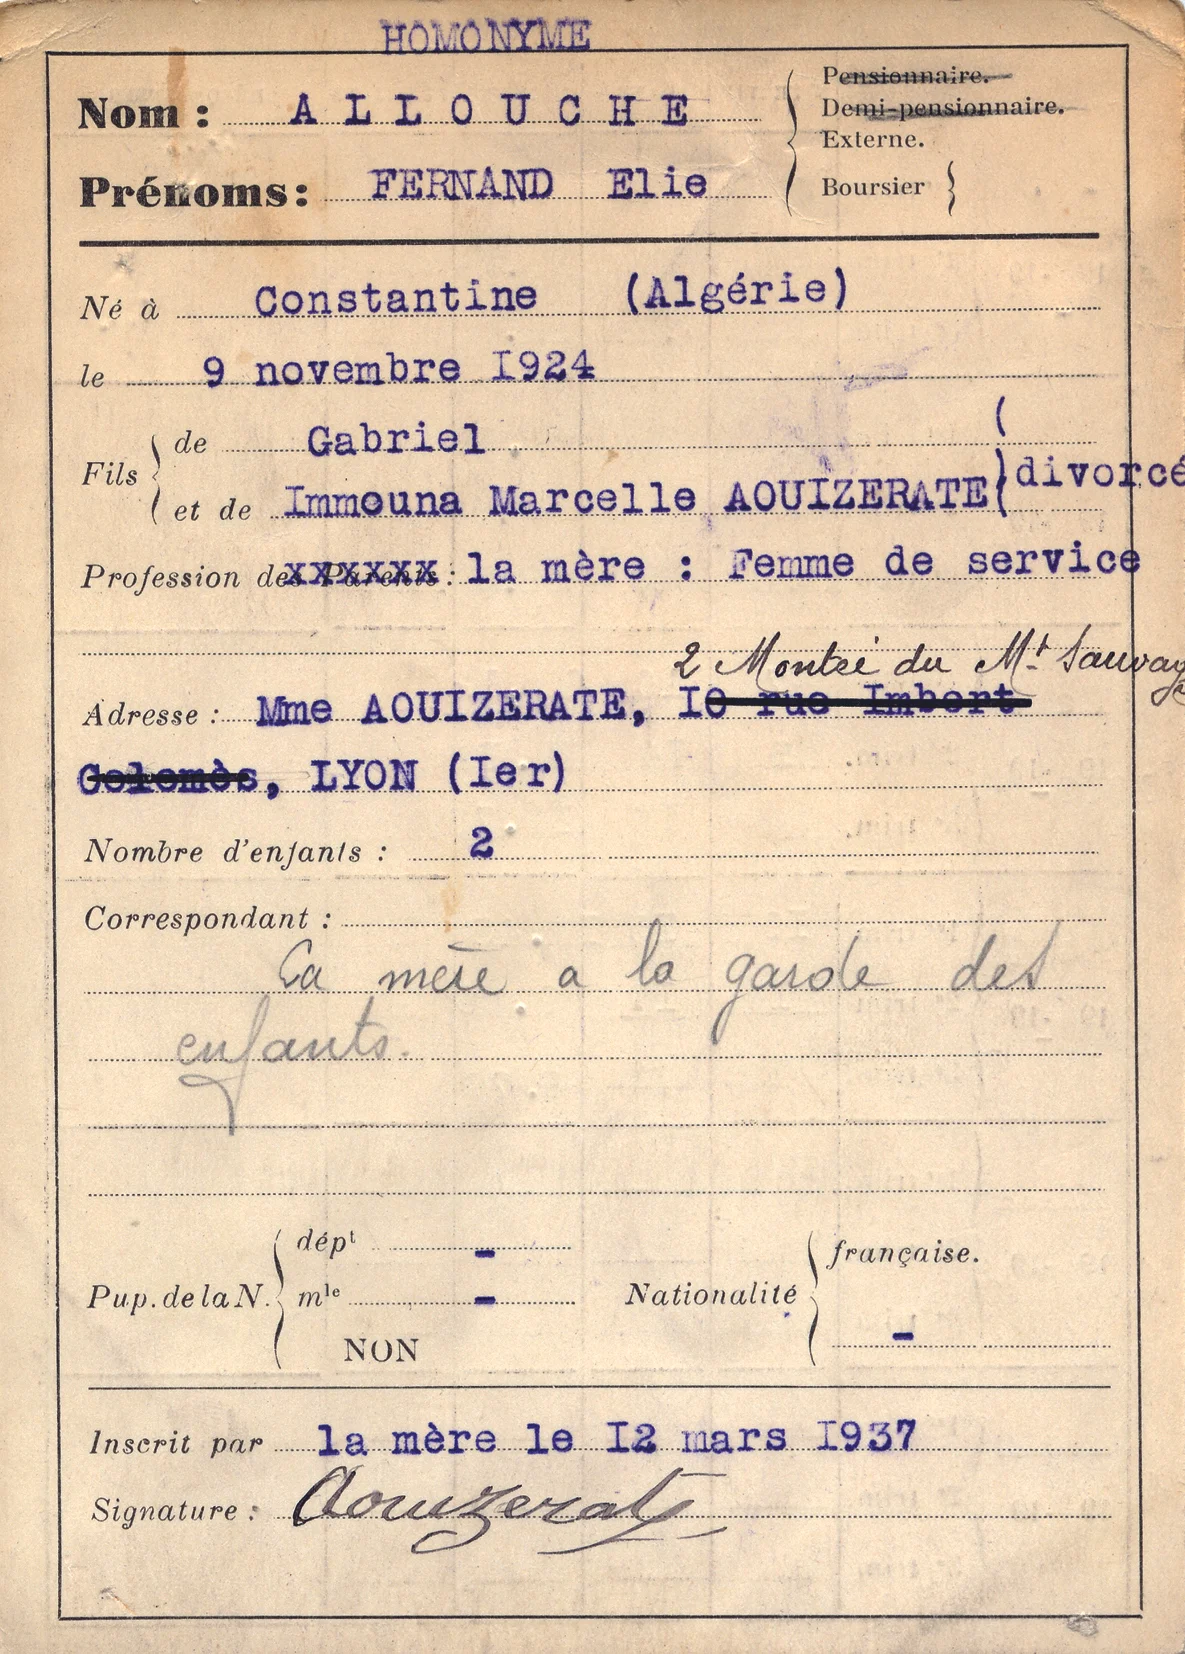 HOMONYME
Nom : ALLOUCHE
Prénoms : FERNAND Elie
Pensionnaire.
Demi-pensionnaire.
Externe.
Boursier
Né à Constantine (Algérie)
le 9 novembre I924
Fils de Gabriel
et de Immouna Marcelle AOUIZERATE divorcé
Profession des Parents : la mère : Femme de service
2 Montée du Mt Sauvage
Adresse : Mme AOUIZERATE, I0 rue Imbert
Colomès, LYON (Ier)
Nombre d'enfants : 2
Correspondant :
La mère a la garde des
enfants.
Pup. de la N. dépt -
mle -
NON
Nationalité française.
-
Inscrit par la mère le I2 mars I937
Signature : Aouizerate